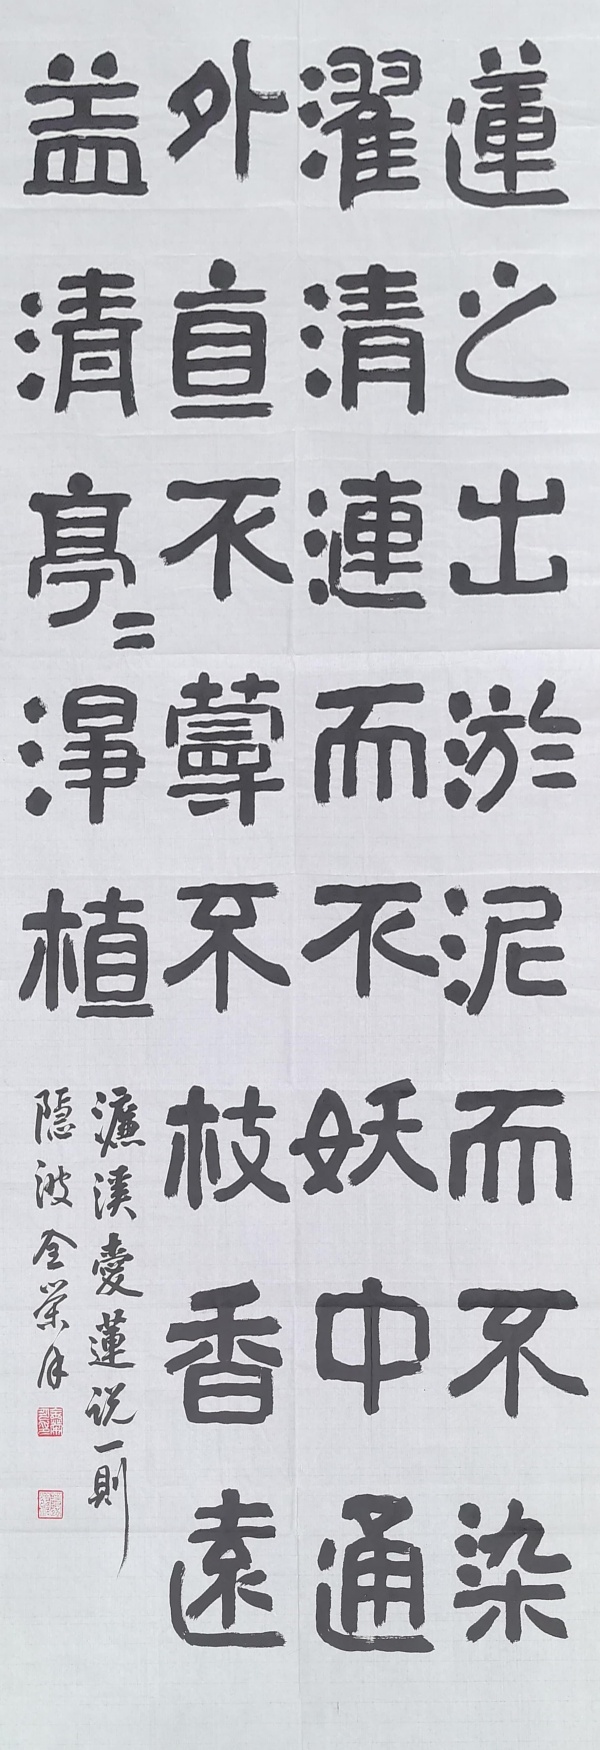 蓮之出淤泥而不染
濯清漣而不妖中通
外直不蔓不枝香遠
益清亭〻淨植
濂溪愛蓮説一則
隱波全榮